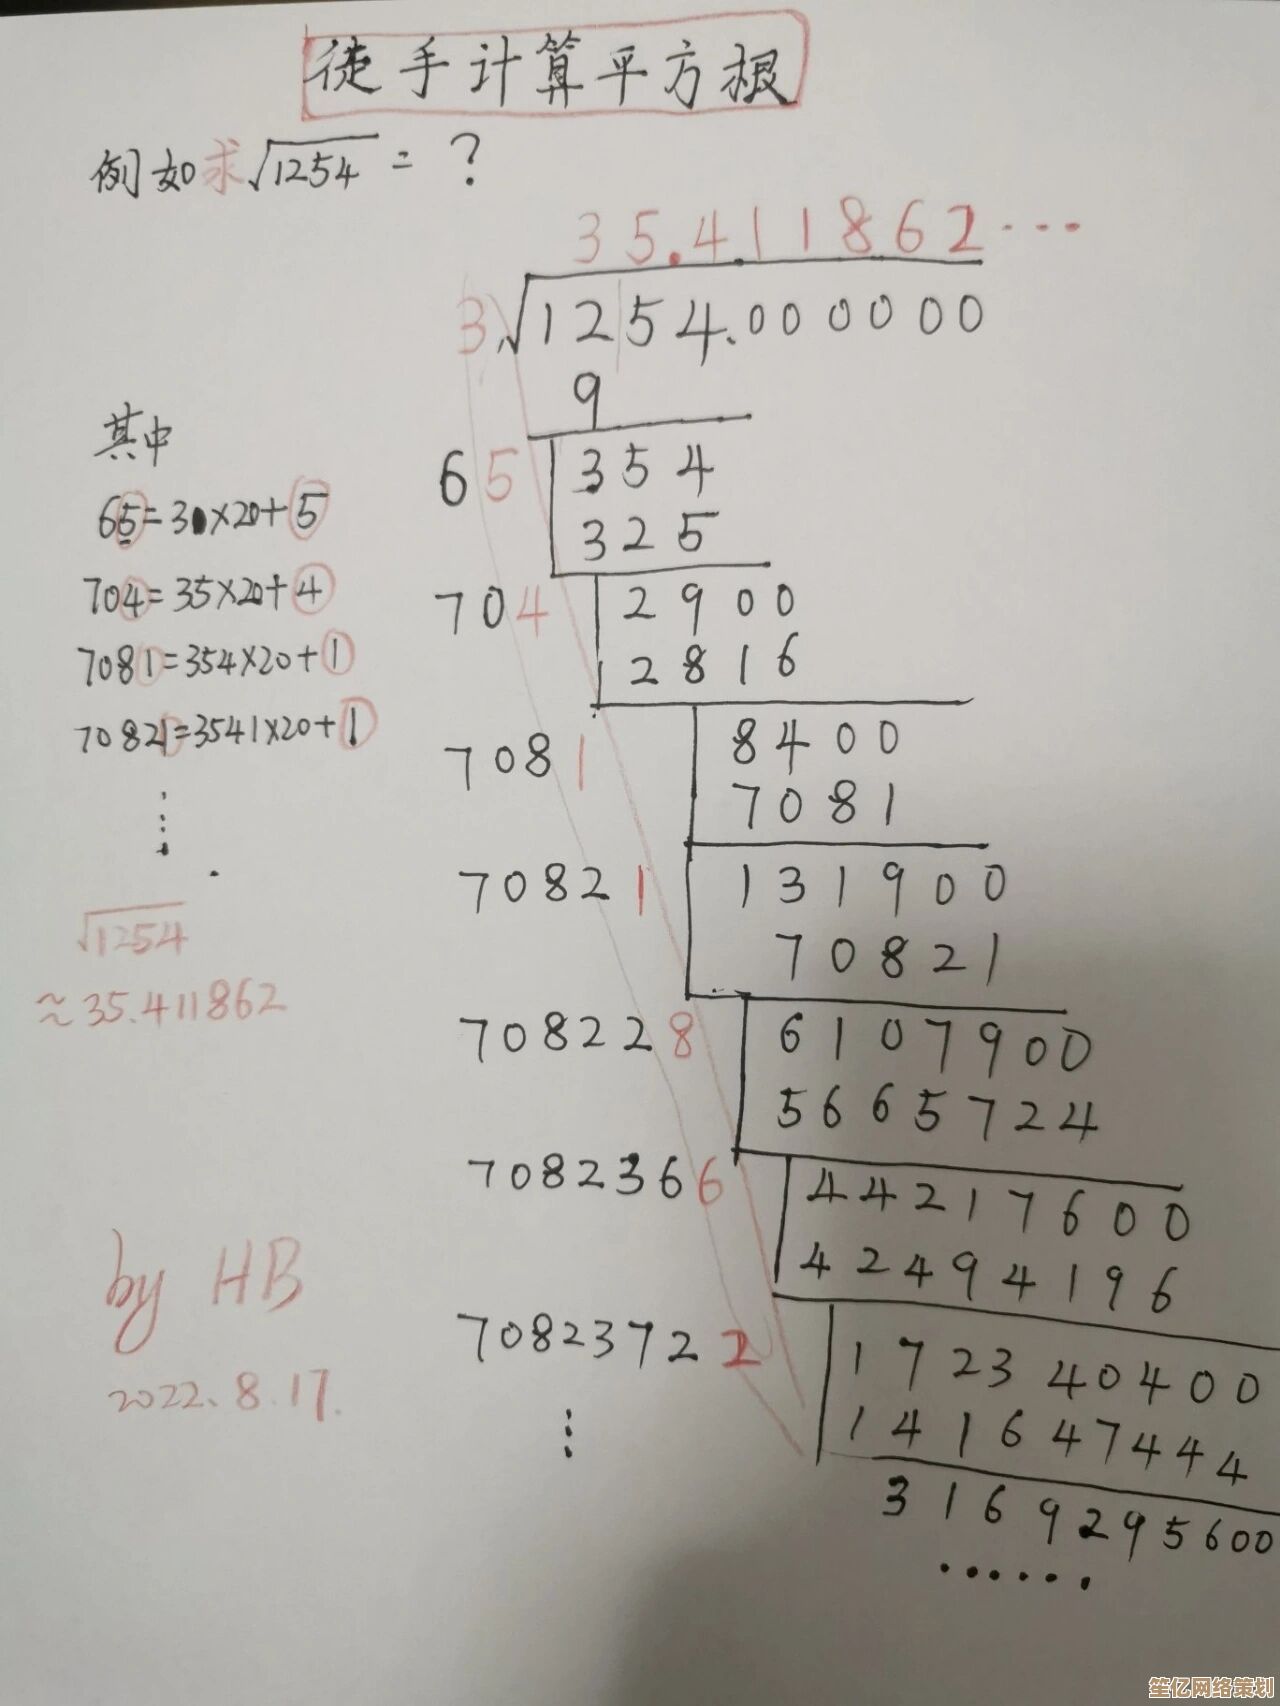 徒手计算平方根
例如求√1254 = ?
35.411862...
3√1254.000000
9
65 354
325
704 2900
2816
7081 8400
7081
70821 131900
70821
708228 6107900
5665724
7082366 44217600
42494196
70823722 172340400
141647444
⋮
3169295600
......
其中
65=3×20+5
704=35×20+4
7081=354×20+1
70821=3541×20+1
⋮
√1254
≈35.411862
by HB
2022.8.17.
笙亿网络策划